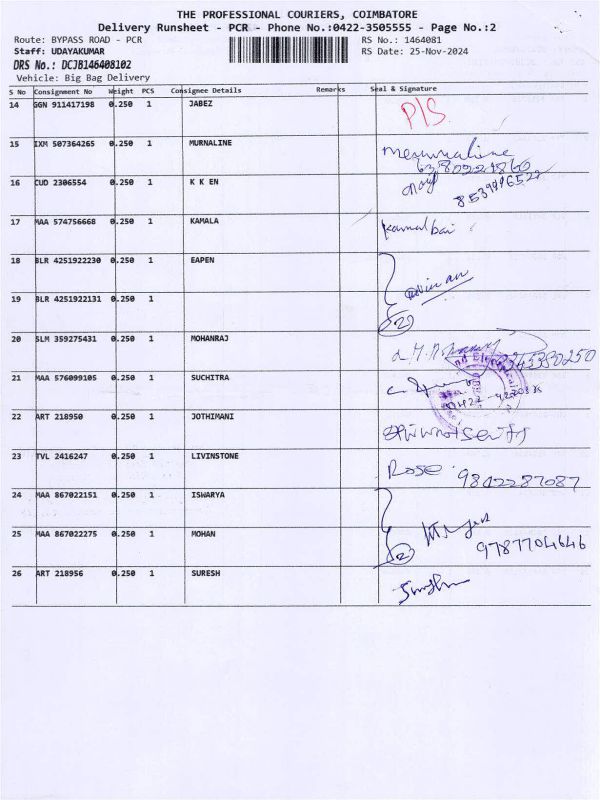 THE PROFESSIONAL COURIERS, COIMBATORE
Delivery Runsheet - PCR - Phone No.:0422-3505555 - Page No.:2
Route: BYPASS ROAD - PCR RS No.: 1464081
Staff: UDAYAKUMAR RS Date: 25-Nov-2024
DRS No.: DCJB146408102
Vehicle: Big Bag Delivery
S No Consignment No Weight PCS Consignee Details Remarks Seal & Signature
14 GGN 911417198 0.250 1 JABEZ P/S
15 IXM 507364265 0.250 1 MURNALINE
16 CUD 2306554 0.250 1 K K EN
17 MAA 574756668 0.250 1 KAMALA Kamalbai
18 BLR 4251922230 0.250 1 EAPEN
19 BLR 4251922131 0.250 1 2
20 SLM 359275431 0.250 1 MOHANRAJ
21 MAA 576099105 0.250 1 SUCHITRA
22 ART 218950 0.250 1 JOTHIMANI
23 TVL 2416247 0.250 1 LIVINSTONE Rose 9842287087
24 MAA 867022151 0.250 1 ISWARYA
25 MAA 867022275 0.250 1 MOHAN 2 9787704646
26 ART 218956 0.250 1 SURESH